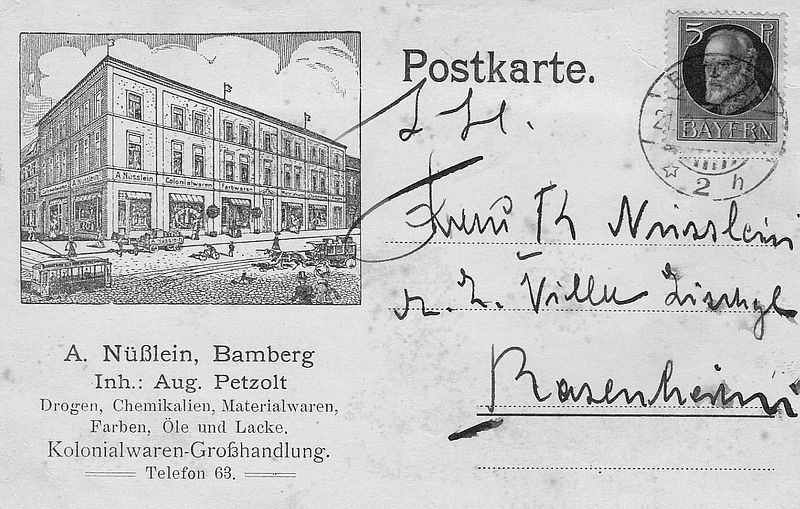 A. Nüsslein
Colonialwaren
Farbwaren
A. Nüßlein, Bamberg
Inh.: Aug. Petzolt
Drogen, Chemikalien, Materialwaren,
Farben, Öle und Lacke.
Kolonialwaren-Großhandlung.
Telefon 63.
Postkarte.
5 P
BAYERN
2 h
Frau Th Nüsslein
z. Z. Villa
Rosenheim